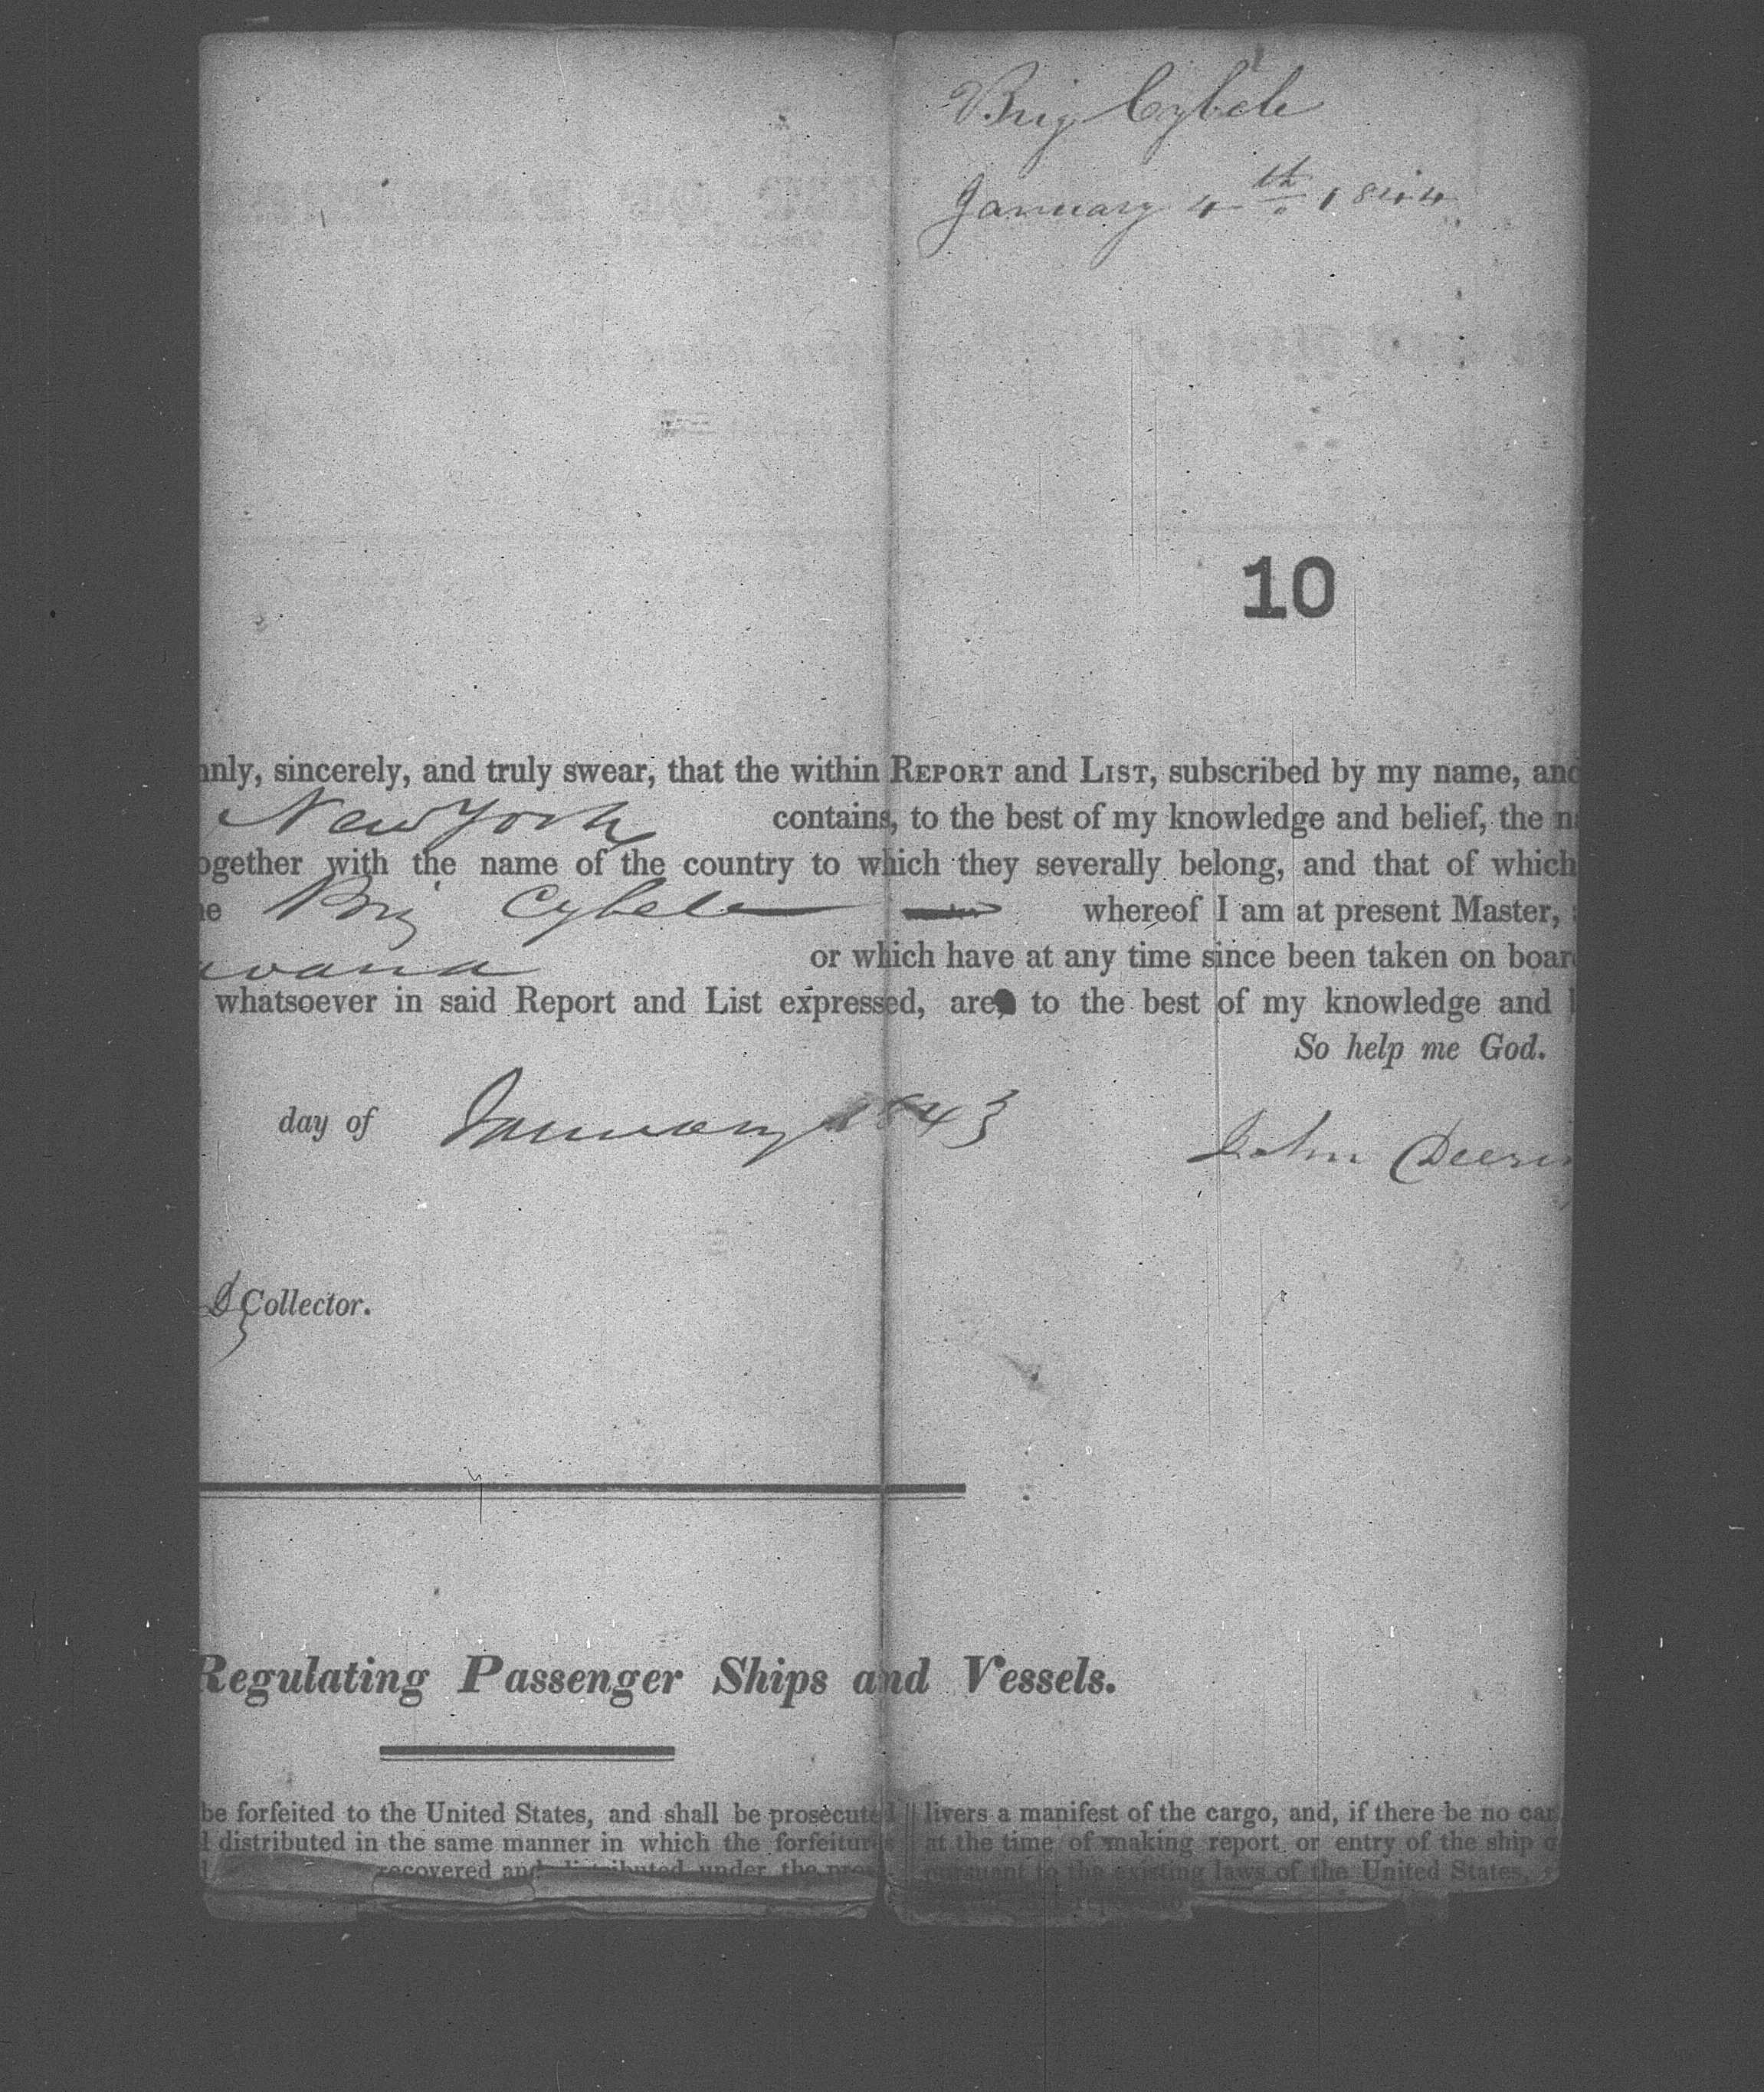 Brig Cybele
January 4th 1844
10
nly, sincerely, and truly swear, that the within REPORT and LIST, subscribed by my name, and
New York contains, to the best of my knowledge and belief, the n
ogether with the name of the country to which they severally belong, and that of which
e Brig Cybele whereof I am at present Master,
avana or which have at any time since been taken on boar
whatsoever in said Report and List expressed, are, to the best of my knowledge and
So help me God.
day of January 1843
John Deerin
D Collector.
Regulating Passenger Ships and Vessels.
be forfeited to the United States, and shall be prosecuted
distributed in the same manner in which the forfeitures
recovered and distributed under the prov-
livers a manifest of the cargo, and, if there be no car
at the time of making report or entry of the ship o
pursuant to the existing laws of the United States,